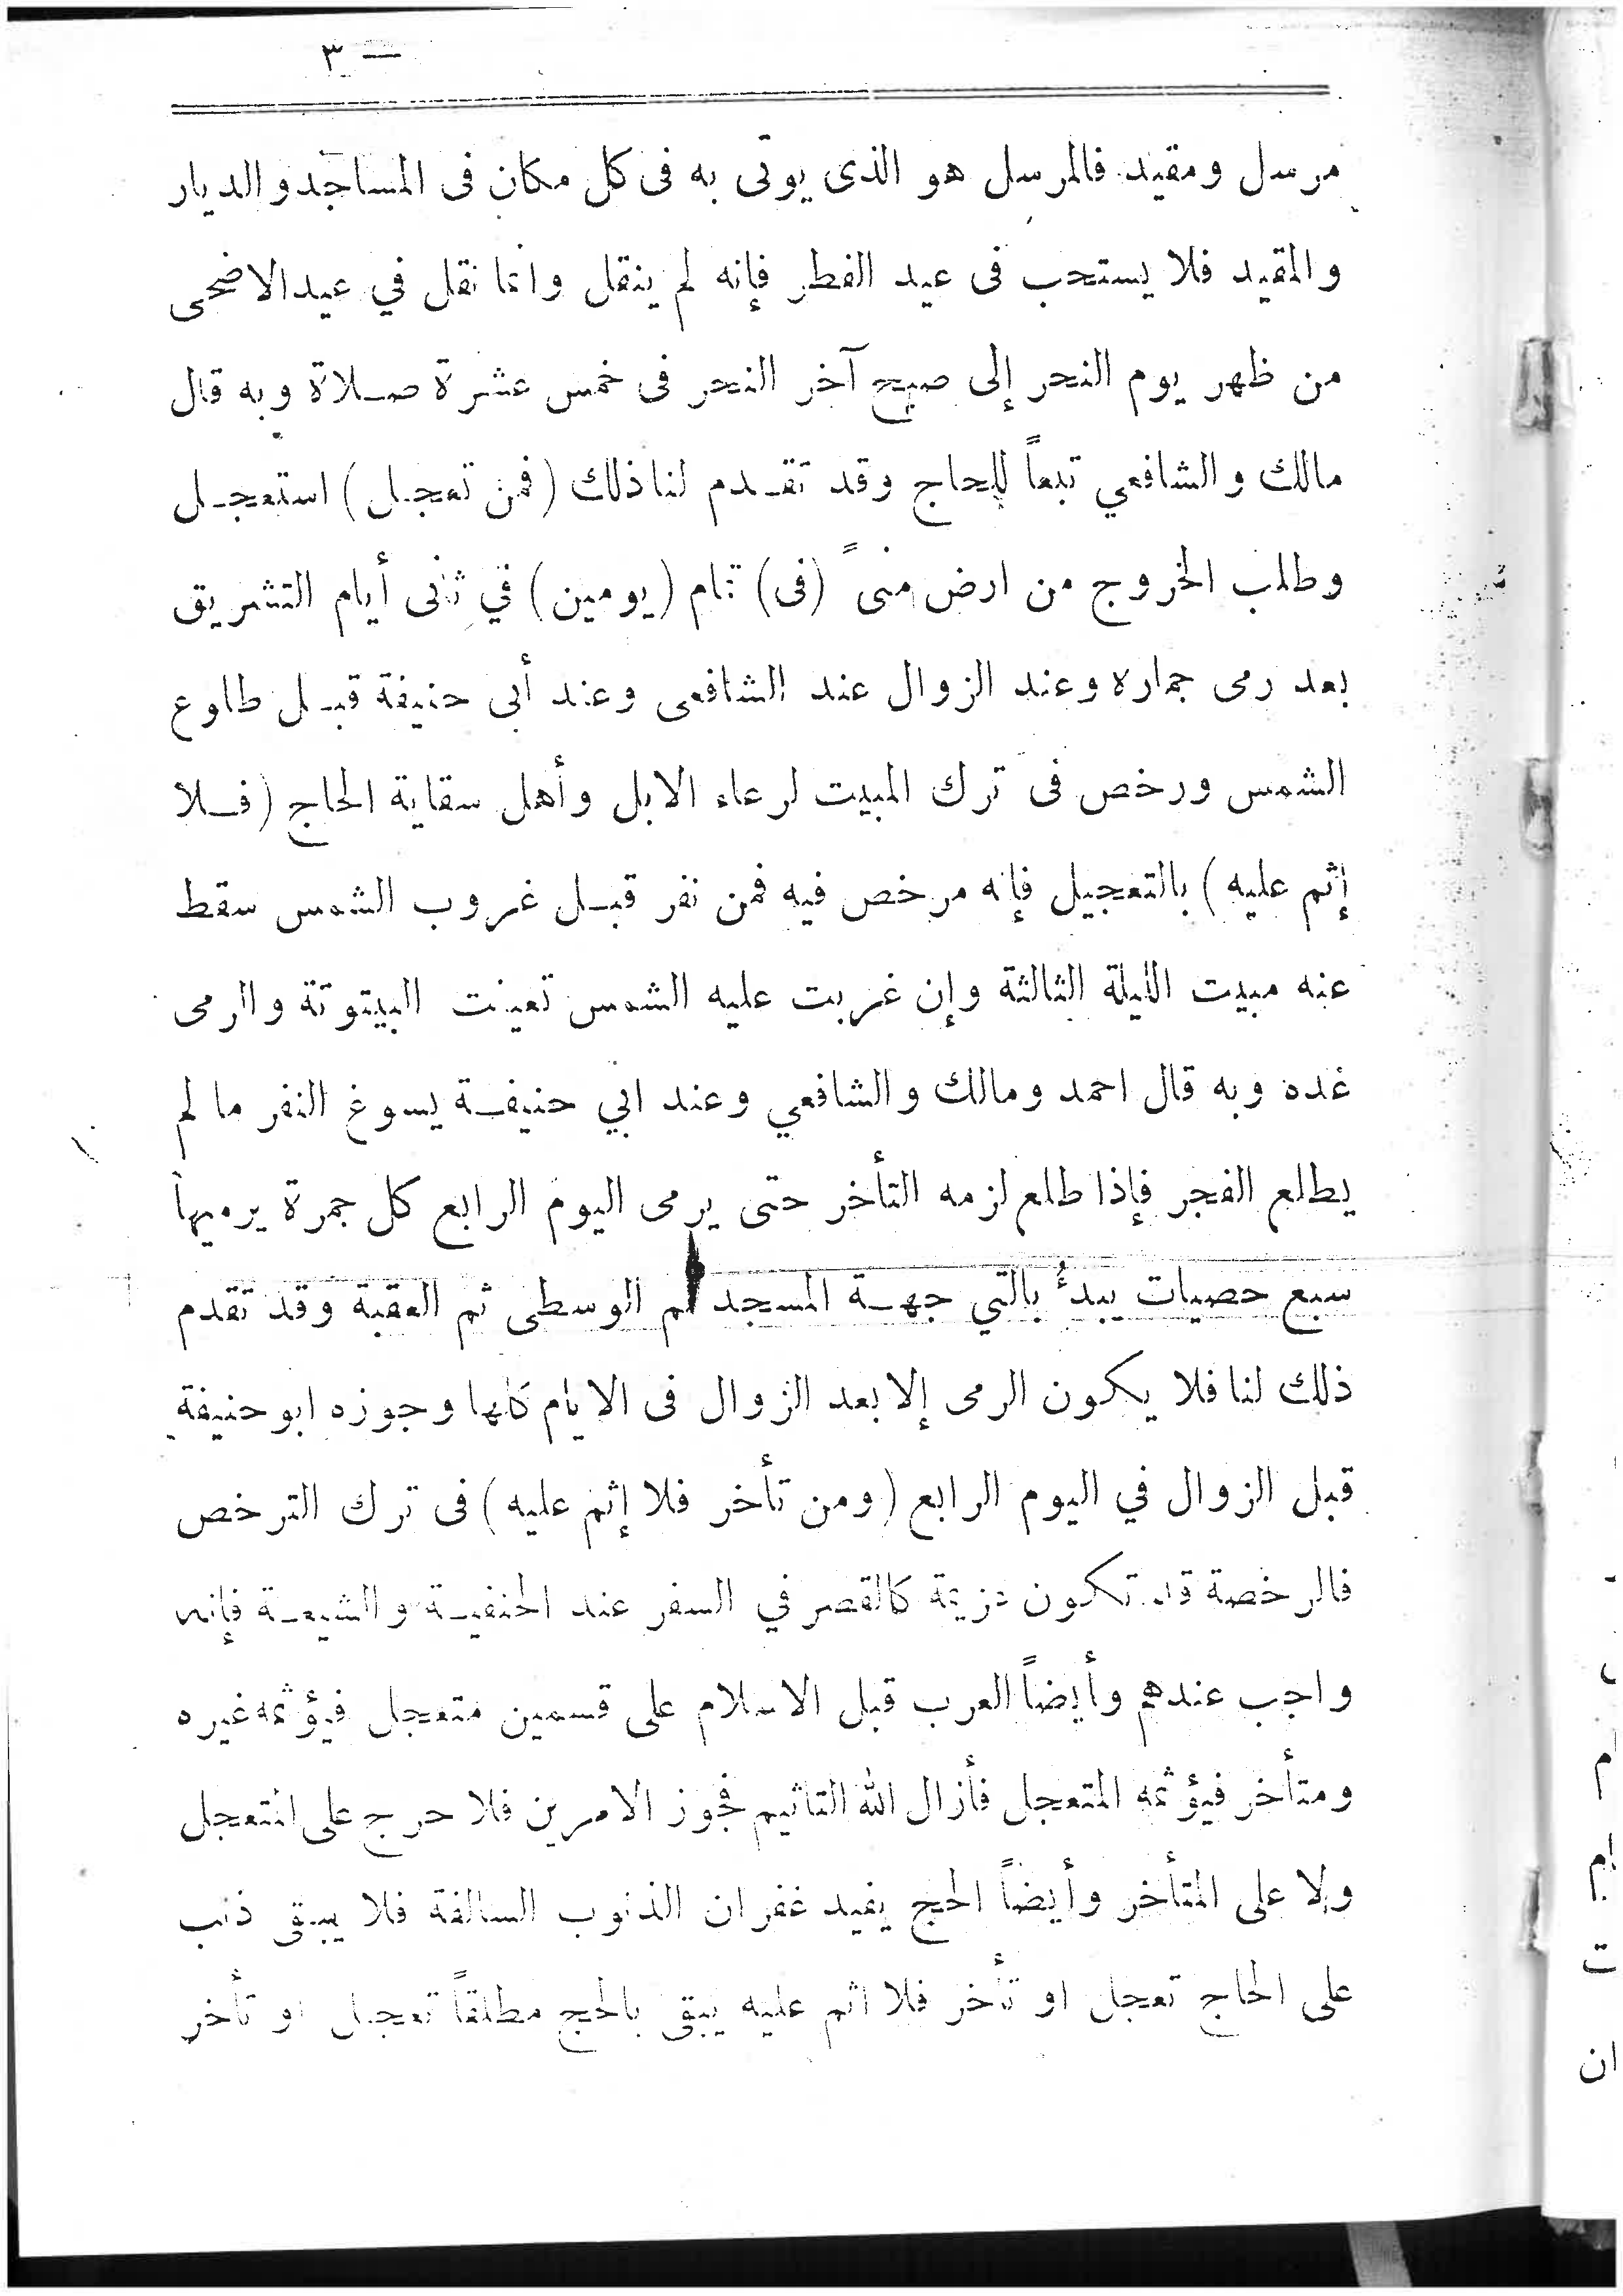 — ٣
مرسل ومقيد فالمرسل هو الذى يوتى به فى كل مكان فى المساجد والديار
والمقيد فلا يستحب فى عيد الفطر فإنه لم ينقل وانما نقل في عيد الاضحى
من ظهر يوم النحر إلى صبح آخر النحر فى خمس عشرة صلاة وبه قال
مالك والشافعي تبعاً للحاج وقد تقدم لنا ذلك (فمن تعجل) استعجل
وطلب الخروج من ارض منىً (فى) تمام (يومين) في ثانى أيام التشريق
بعد رمى جماره وعند الزوال عند الشافعى وعند أبى حنيفة قبل طلوع
الشمس ورخص فى ترك المبيت لرعاء الابل وأهل سقاية الحاج (فلا
إثم عليه) بالتعجيل فإنه مرخص فيه فمن نفر قبل غروب الشمس سقط
عنه مبيت الليلة الثالثة وإن غربت عليه الشمس تعينت البيتوتة والرمى
غده وبه قال احمد ومالك والشافعي وعند ابي حنيفة يسوغ النفر ما لم
يطلع الفجر فإذا طلع لزمه التأخر حتى يرمى اليوم الرابع كل جمرة يرميها
سبع حصيات يبدأُ بالتي جهة المسجد ثم الوسطى ثم العقبة وقد تقدم
ذلك لنا فلا يكون الرمى إلا بعد الزوال فى الايام كلها وجوزه ابو حنيفة
قبل الزوال في اليوم الرابع (ومن تأخر فلا إثم عليه) فى ترك الترخص
فالرخصة قد تكون عزيمة كالقصر في السفر عند الحنفية والشيعة فإنه
واجب عندهم وأيضاً العرب قبل الاسلام على قسمين متعجل فيؤثمه غيره
ومتأخر فيؤثمه المتعجل فأزال الله التاثيم فجوز الامرين فلا حرج على المتعجل
ولا على المتأخر وأيضاً الحج يفيد غفران الذنوب السالفة فلا يبقى ذنب
على الحاج تعجل او تأخر فلا اثم عليه يبقى بالحج مطلقاً تعجل او تأخر